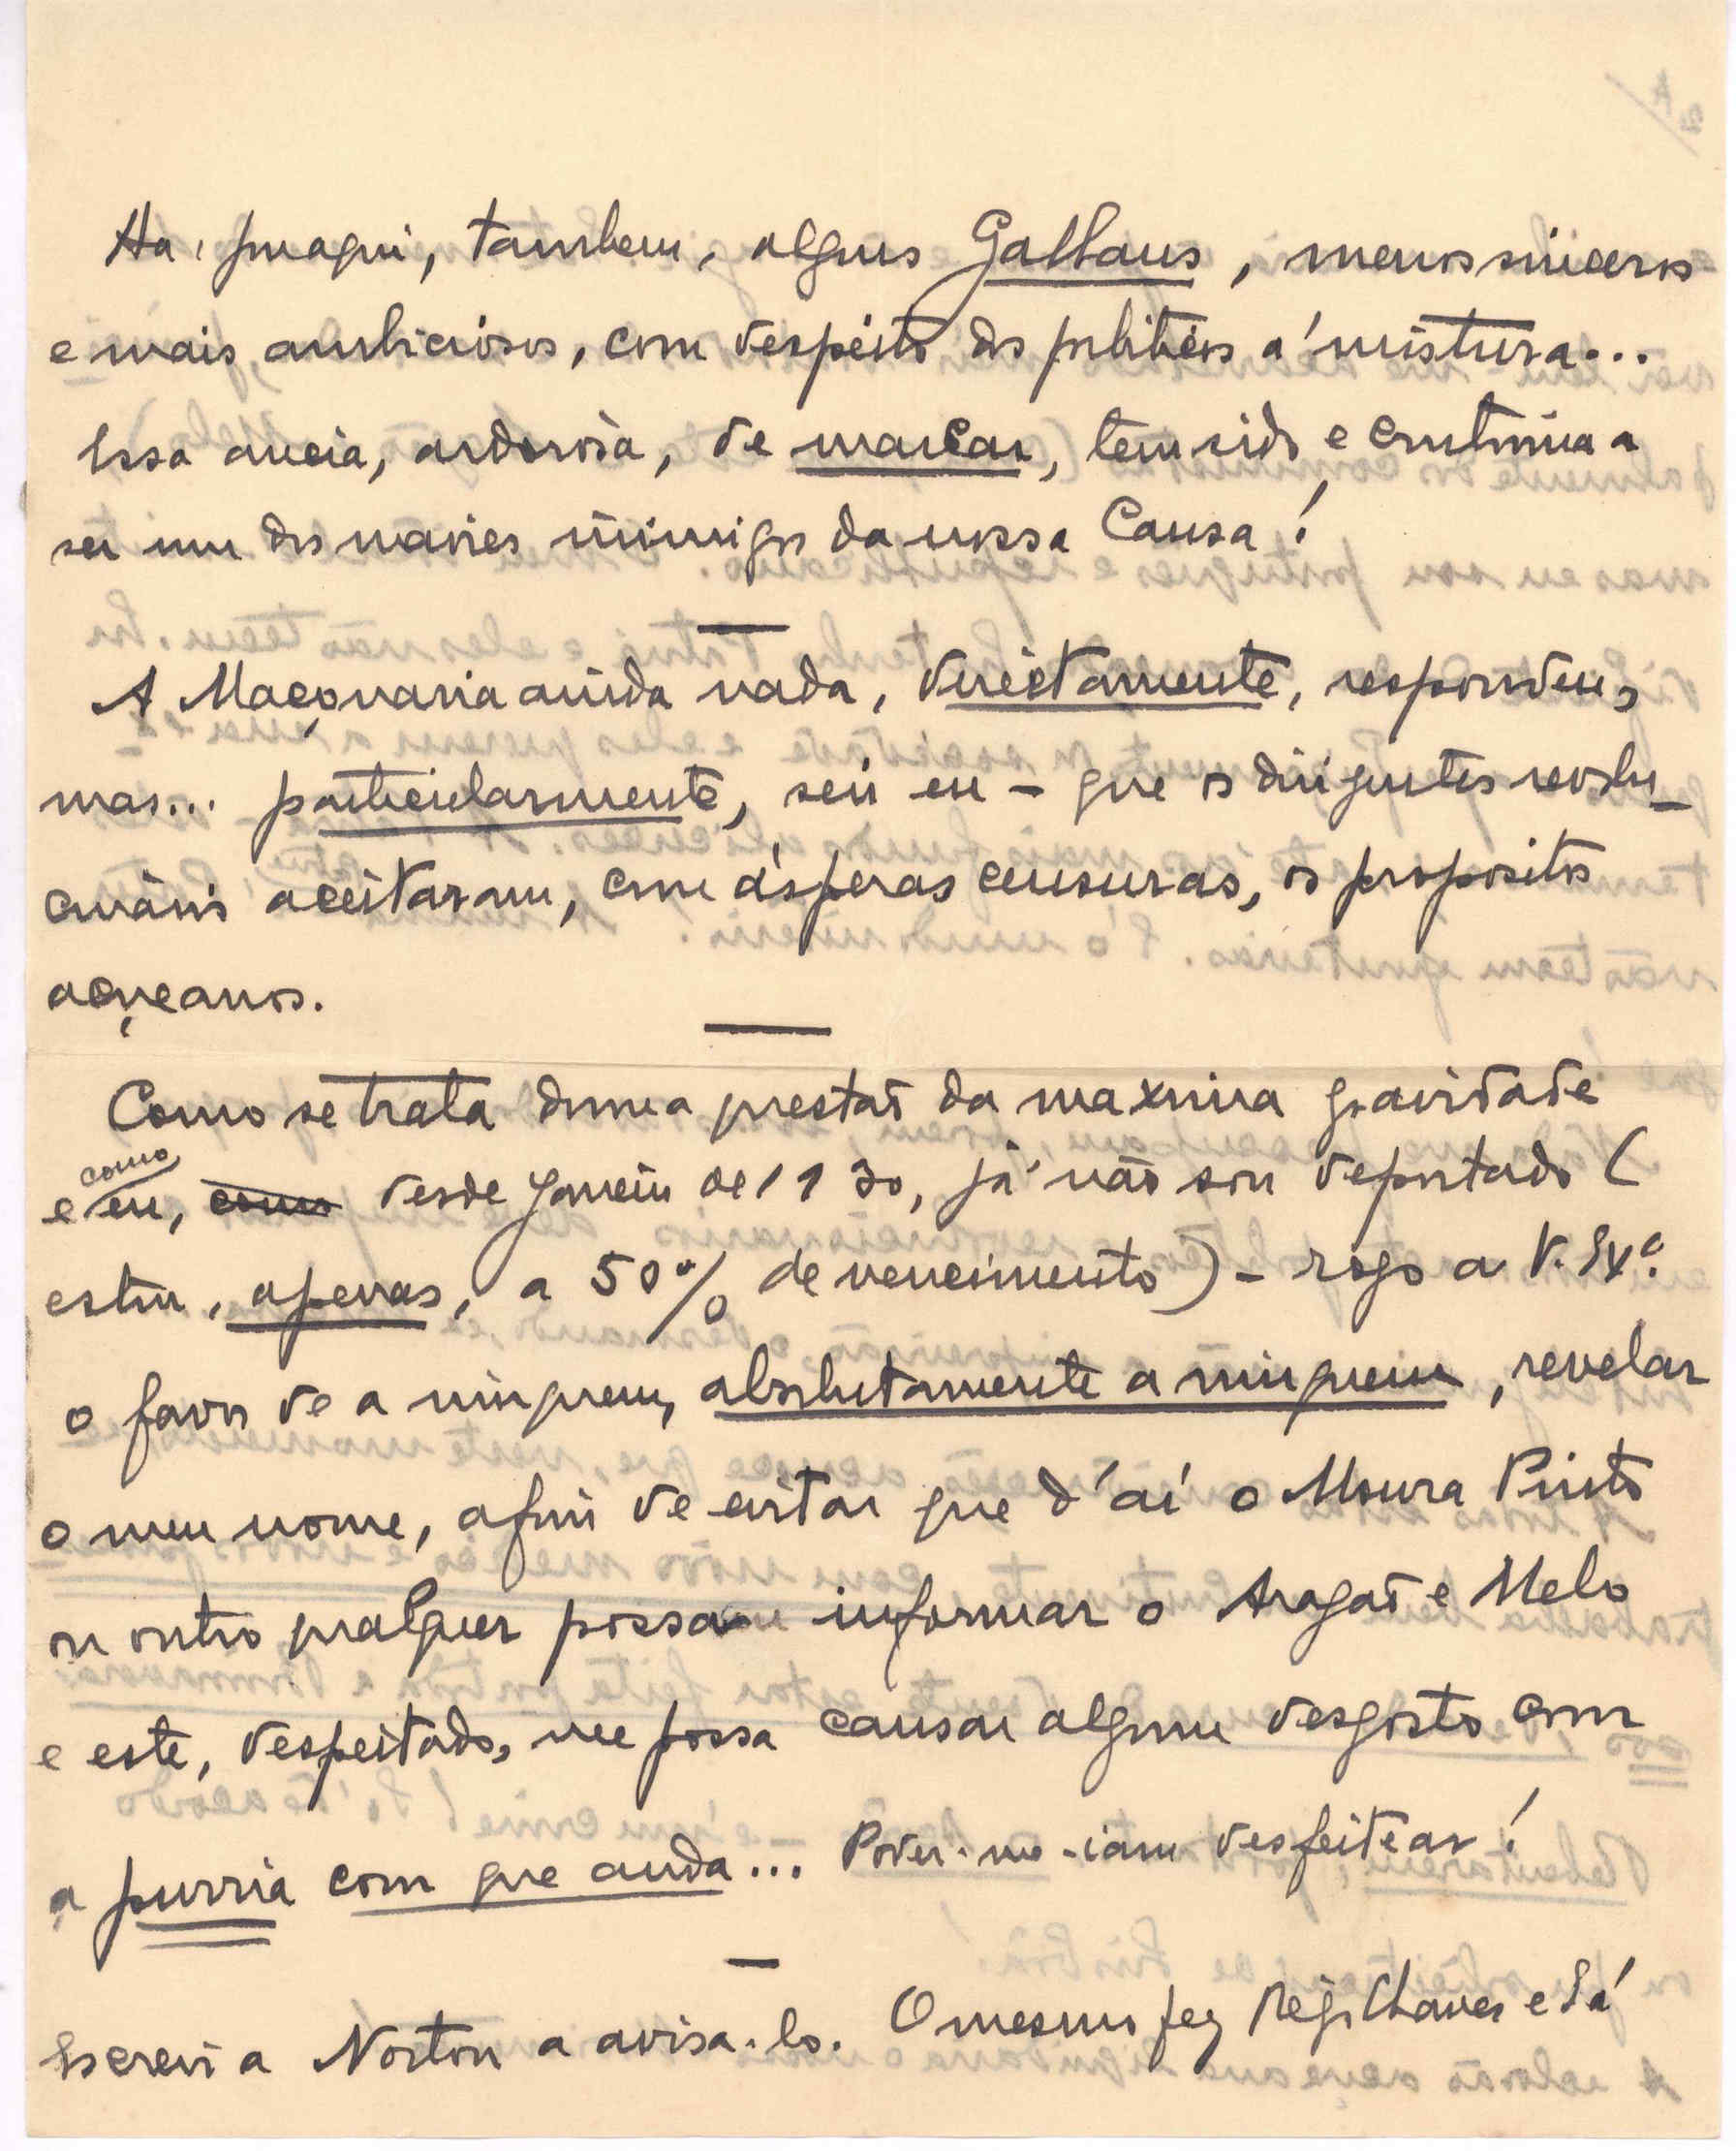 Ha, por aqui, tambem, alguns Galhans, menos sinceros
e mais ambiciosos, com despeito dos politicos á mistura...
Essa ancia, ardorosa, de marcar, tem sido e continua a
ser um dos maiores inimigos da nossa Causa!
A Maçonaria ainda nada, directamente, respondeu,
mas... particularmente, sei eu - que os dirigentes revolu-
cionários aceitaram, com ásperas censuras, os propositos
açoreanos.
Como se trata duma questão da maxima gravidade
e eu, como desde Janeiro de 1930, já não sou deportado (
estou, apenas, a 50% de vencimento) - rogo a V. Exª
o favor de a ninguem, absolutamente a ninguem, revelar
o meu nome, afim de evitar que d'aí o Moura Pinto
ou outro qualquer possa informar o Aragão e Melo
e este, despeitado, me possa causar algum desgosto com
a purria com que anda... Poder-me-iam desfeitear!
Escrevi a Norton a avisa-lo. O mesmo fez Rego Chaves e Sá